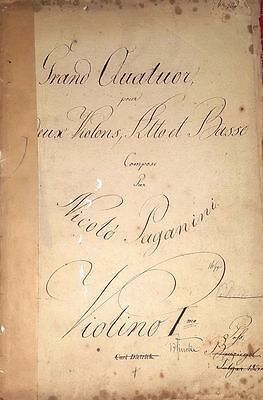 Grand Quatuor,
pour
Deux Violons, Alto et Basse
Composé
Par
Nicoló Paganini.
Violino 1mo
Curt Dietrich